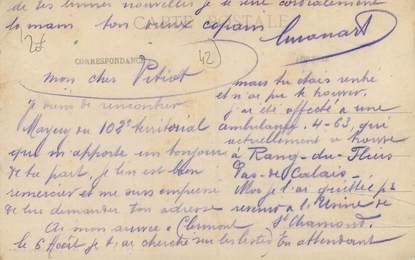 de tes bonnes nouvelles je te serre cordialement
la main ton vieux copain
CARTE POSTALE
CORRESPONDANCE
42
Mon cher Pitiot
Je viens de rencontrer
Mayeu du 102e territorial
qui m'apporte un bonjour
de ta part, je t'en est bien
remercier et me suis empressé
de lui demander ton adresse
As mon arrivée a Clermont
le 6 Août je t'ai cherché sur les listes
mais tu etais rentré
et n'ai pu te trouver.
J'ai été affecté a une
ambulance. 4-63, qui
actuellement se trouve
a Rang-du-Fliers
Pas-de-Calais.
Moi je l'ai quittée pr
revenir a l'Usine de
St Chamond.
En attendant